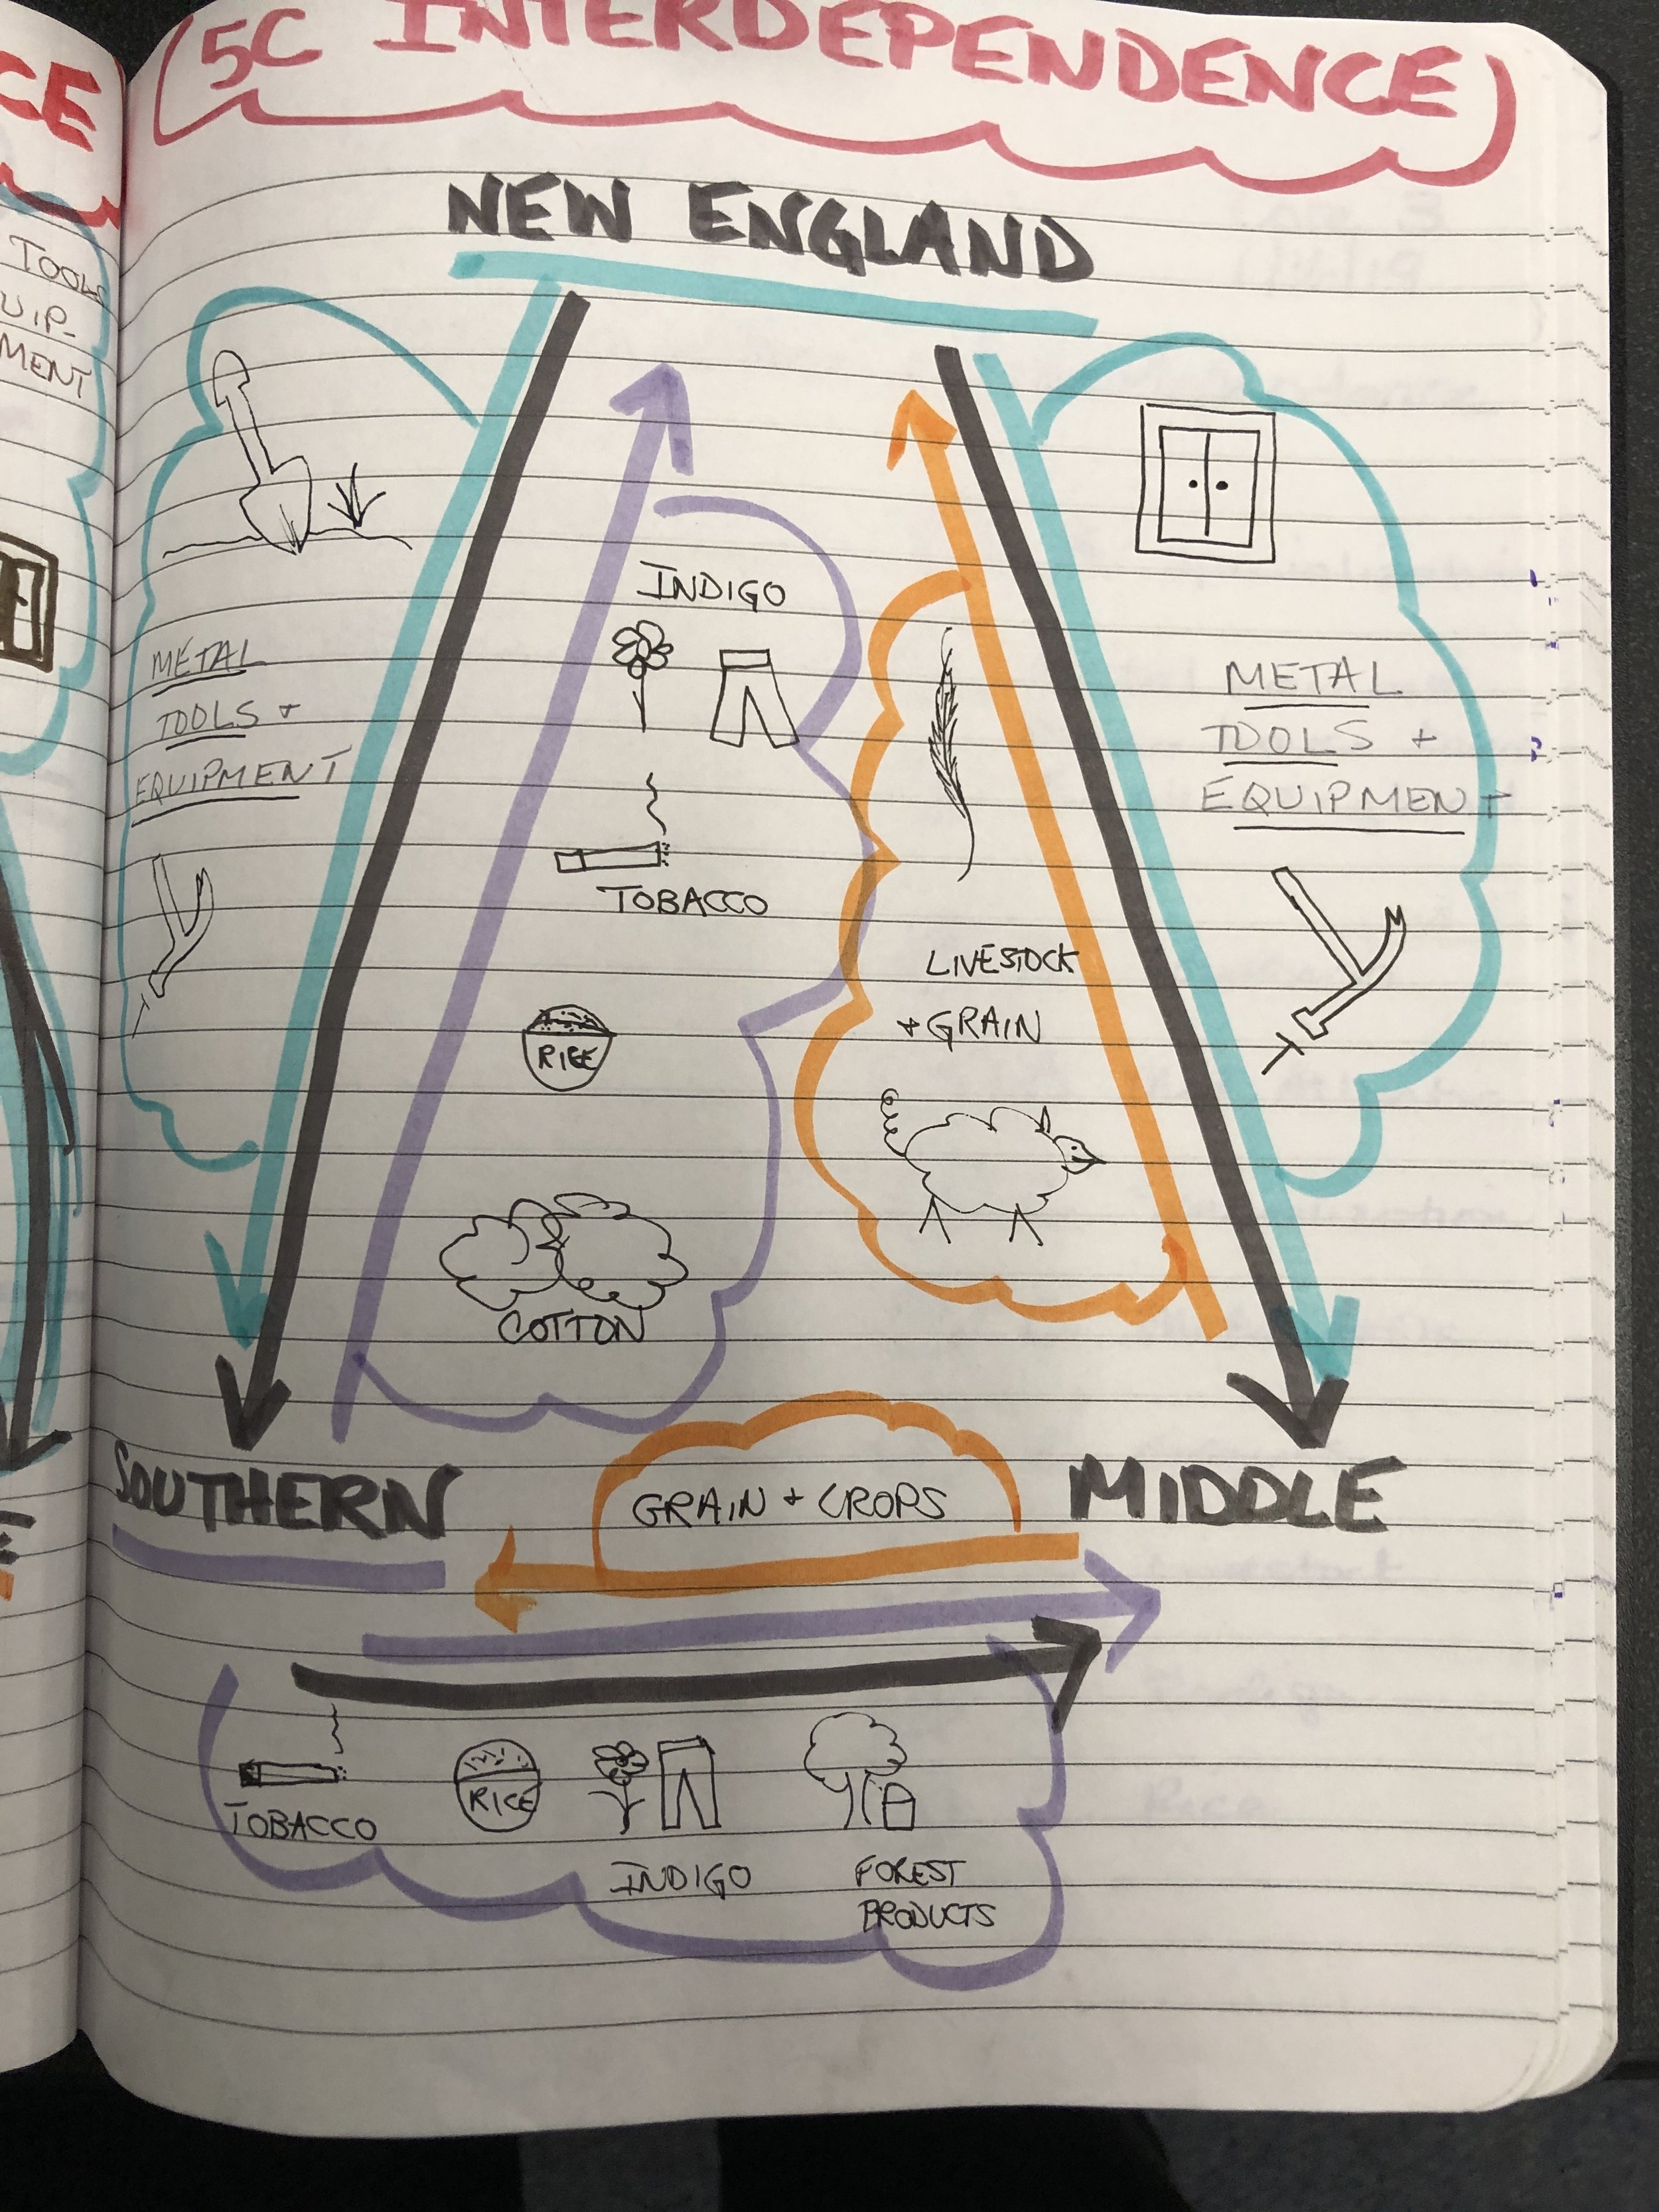 CE
TOOLS
UIP-
MENT
(5C INTERDEPENDENCE)
NEW ENGLAND
METAL
TOOLS +
EQUIPMENT
INDIGO
TOBACCO
RICE
COTTON
LIVESTOCK
+ GRAIN
METAL
TOOLS +
EQUIPMENT
SOUTHERN
GRAIN + CROPS
MIDDLE
TOBACCO
RICE
INDIGO
FOREST
PRODUCTS